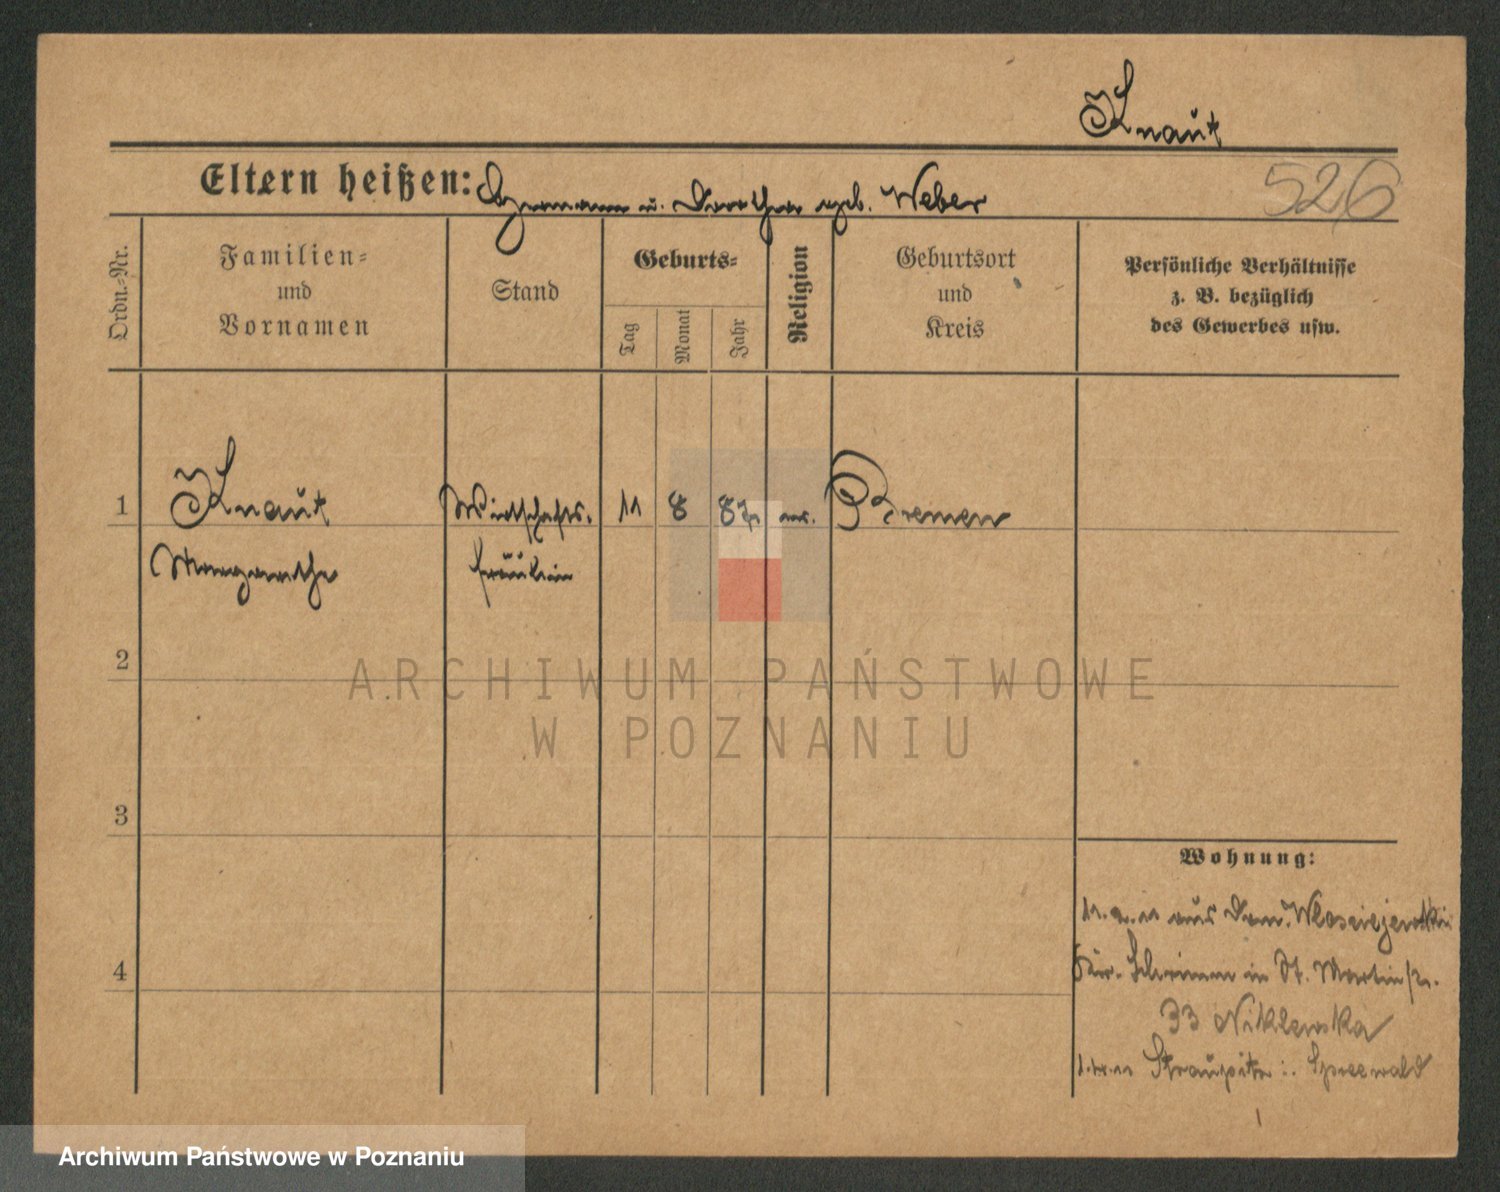 Knaut
Eltern heißen: Hermann u. Dorothea geb. Weber
526
Ordn.-Nr.
Familien-
und
Vornamen
Stand
Geburts-
Tag
Monat
Jahr
Religion
Geburtsort
und
Kreis
Persönliche Verhältnisse
z. B. bezüglich
des Gewerbes usw.
1 Knaut Wirtschafts. 11 8 Bremen
Margarethe fräulein
2
3
4
Wohnung:
aus Dom. Wlosciejewki
Kr. Schrimm in St. Martinstr.
33 Niklewska
Straupitz i. Spreewald
ARCHIWUM PAŃSTWOWE
W POZNANIU
Archiwum Państwowe w Poznaniu